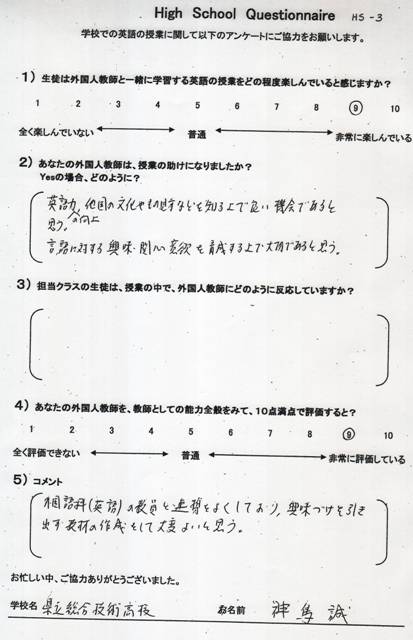 High School Questionnaire HS-3
学校での英語の授業に関して以下のアンケートにご協力をお願いします。
1）生徒は外国人教師と一緒に学習する英語の授業をどの程度楽しんでいると感じますか？
1 2 3 4 5 6 7 8 9 10
全く楽しんでいない 普通 非常に楽しんでいる
2）あなたの外国人教師は、授業の助けになりましたか？
Yesの場合、どのように？
英語力の向上、他国の文化やものの見方などを知る上で良い機会であると
思う。
言語に対する興味・関心・意欲を育成する上で大切であると思う。
3）担当クラスの生徒は、授業の中で、外国人教師にどのように反応していますか？
4）あなたの外国人教師を、教師としての能力全般をみて、10点満点で評価すると？
1 2 3 4 5 6 7 8 9 10
全く評価できない 普通 非常に評価している
5）コメント
(英語)の教員と連携をよくしており、興味づけを引き
出す教材の作成をして大変よいと思う。
お忙しい中、ご協力ありがとうございました。
学校名 県立総合技術高校 お名前 誠